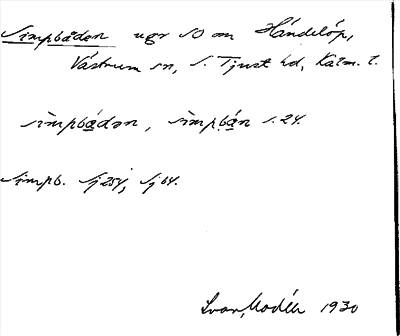 Simpbåden ugr SO om Händelöp,
Västrum sn, S. Tjust hd, Kalm. l.
sìmpbá̱dən, sìmpbá̱n s. 24.
Simpb. Sj 254, Sj 64.
Ivar Modéer 1930